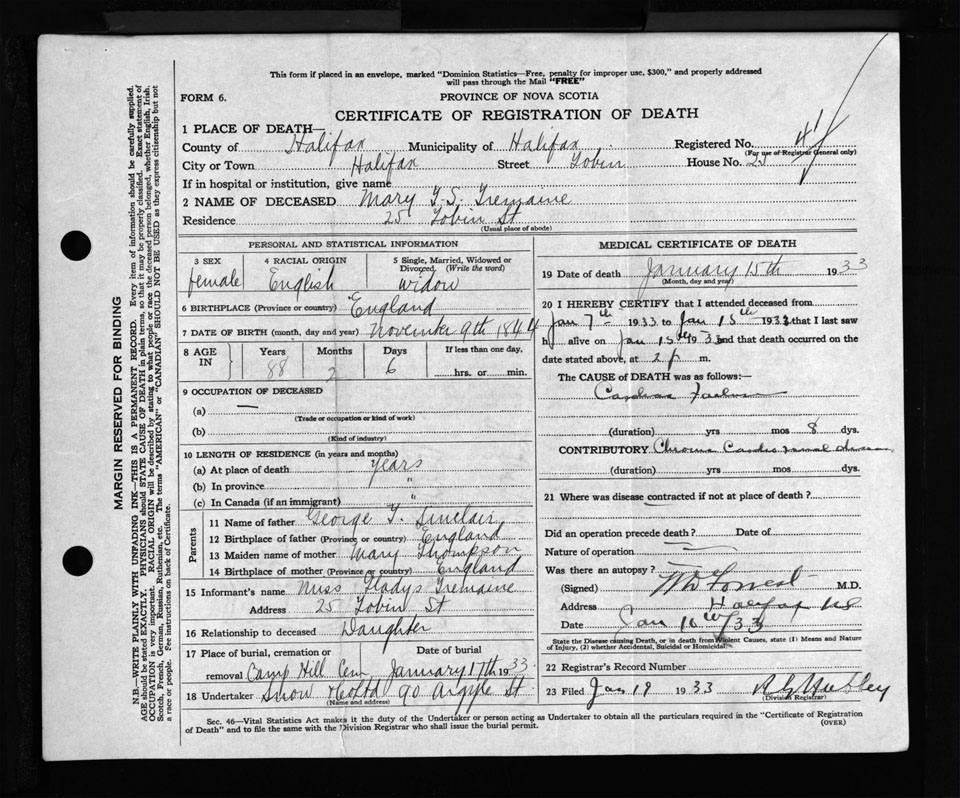 This form if placed in an envelope, marked "Dominion Statistics—Free, penalty for improper use, $300," and properly addressed
will pass through the Mail "FREE"
FORM 6.
PROVINCE OF NOVA SCOTIA
CERTIFICATE OF REGISTRATION OF DEATH
1 PLACE OF DEATH—
County of Halifax Municipality of Halifax Registered No.
(For use of Registrar General only)
City or Town Halifax Street Tobin House No. 25
If in hospital or institution, give name
2 NAME OF DECEASED Mary T.S. Tremaine
Residence 25 Tobin St
(Usual place of abode)
PERSONAL AND STATISTICAL INFORMATION
3 SEX female
4 RACIAL ORIGIN English
5 Single, Married, Widowed or
Divorced (Write the word)
widow
6 BIRTHPLACE (Province or country) England
7 DATE OF BIRTH (month, day and year) November 9th 1844
8 AGE IN
Years 88 Months 2 Days 6
If less than one day,
hrs. or min.
9 OCCUPATION OF DECEASED
(a) —
(Trade or occupation or kind of work)
(b)
(Kind of industry)
10 LENGTH OF RESIDENCE (in years and months)
(a) At place of death years
(b) In province "
(c) In Canada (if an immigrant) "
Parents
11 Name of father George T. Sinclair
12 Birthplace of father (Province or country) England
13 Maiden name of mother Mary Thompson
14 Birthplace of mother (Province or country) England
15 Informant's name Miss Gladys Tremaine
Address 25 Tobin St
16 Relationship to deceased Daughter
17 Place of burial, cremation or
removal Camp Hill Cem
Date of burial
January 17th 1933
18 Undertaker Snow & Co Ltd 90 Argyle St
(Name and address)
MEDICAL CERTIFICATE OF DEATH
19 Date of death January 15th 1933
(Month, day and year)
20 I HEREBY CERTIFY that I attended deceased from
Jan 7th 1933 to Jan 15th 1933 that I last saw
h alive on Jan 15th 1933 and that death occurred on the
date stated above, at 2 p m.
The CAUSE of DEATH was as follows:—
Cardiac Failure
(duration) yrs mos 8 dys.
CONTRIBUTORY Chronic Cardio renal disease
(duration) yrs. mos dys.
21 Where was disease contracted if not at place of death?
Did an operation precede death? Date of
Nature of operation
Was there an autopsy?
(Signed) W D Forrest M.D.
Address Halifax NS
Date Jan 16th/33
State the Disease causing Death, or in death from Violent Causes, state (1) Means and Nature
of Injury, (2) whether Accidental, Suicidal or Homicidal.
22 Registrar's Record Number
23 Filed Jan 19 1933
(Division Registrar)
Sec. 46—Vital Statistics Act makes it the duty of the Undertaker or person acting as Undertaker to obtain all the particulars required in the "Certificate of Registration
of Death" and to file the same with the Division Registrar who shall issue the burial permit.
(OVER)
MARGIN RESERVED FOR BINDING
N.B.—WRITE PLAINLY WITH UNFADING INK—THIS IS A PERMANENT RECORD. Every item of information should be carefully supplied.
AGE should be stated EXACTLY. PHYSICIANS should STATE CAUSE OF DEATH in plain terms, so that it may be properly classified. Exact statement of
OCCUPATION is very important. RACIAL ORIGIN will be described by stating to what people or race the deceased person belonged, whether English, Irish,
Scotch, French, German, Russian, Ruthenian, etc. The terms "AMERICAN" or "CANADIAN" SHOULD NOT BE USED as they express citizenship but not
a race or people. See instructions on back of Certificate.